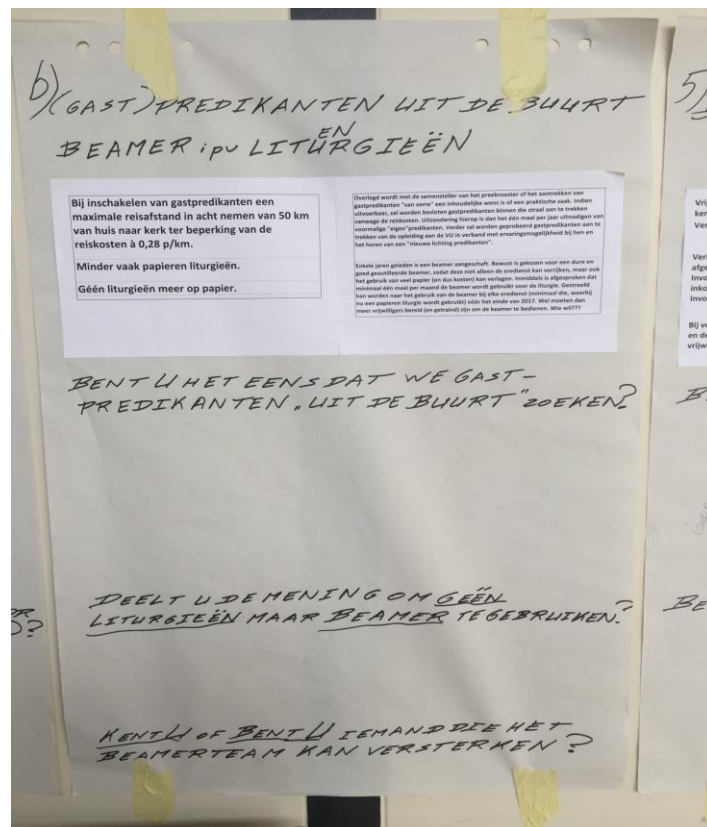 b) (GAST)PREDIKANTEN UIT DE BUURT
EN
BEAMER ipv LITURGIEËN
Bij inschakelen van gastpredikanten een
maximale reisafstand in acht nemen van 50 km
van huis naar kerk ter beperking van de
reiskosten à 0,28 p/km.
Minder vaak papieren liturgieën.
Géén liturgieën meer op papier.
Overlegd wordt met de samensteller van het preekrooster of het aantrekken van
gastpredikanten "van verre" een inhoudelijke wens is of een praktische zaak. Indien
uitvoerbaar, zal worden besloten gastpredikanten binnen die straal aan te trekken
vanwege de reiskosten. Uitzondering hierop is dan het één maal per jaar uitnodigen van
voormalige "eigen"predikanten. Verder zal worden geprobeerd gastpredikanten aan te
trekken van de opleiding aan de VU in verband met ervaringsmogelijkheid bij hen en
het horen van een "nieuwe lichting predikanten".
Enkele jaren geleden is een beamer aangeschaft. Bewust is gekozen voor een dure en
goed geoutilleerde beamer, zodat deze niet alleen de eredienst kan verrijken, maar ook
het gebruik van veel papier (en dus kosten) kan verlagen. Inmiddels is afgesproken dat
minimaal één maal per maand de beamer wordt gebruikt voor de liturgie. Gestreefd
kan worden naar het gebruik van de beamer bij elke eredienst (minimaal die, waarbij
nu een papieren liturgie wordt gebruikt) vóór het einde van 2017. Wel moeten dan
meer vrijwilligers bereid (en getraind) zijn om de beamer te bedienen. Wie wil???
BENT U HET EENS DAT WE GAST-
PREDIKANTEN „UIT DE BUURT" ZOEKEN?
DEELT U DE MENING OM GEËN
LITURGIEËN MAAR BEAMER TE GEBRUIKEN?
KENT U OF BENT U IEMAND DIE HET
BEAMERTEAM KAN VERSTERKEN?
5)
Vrij
Bij v
en de
vrijw
BE